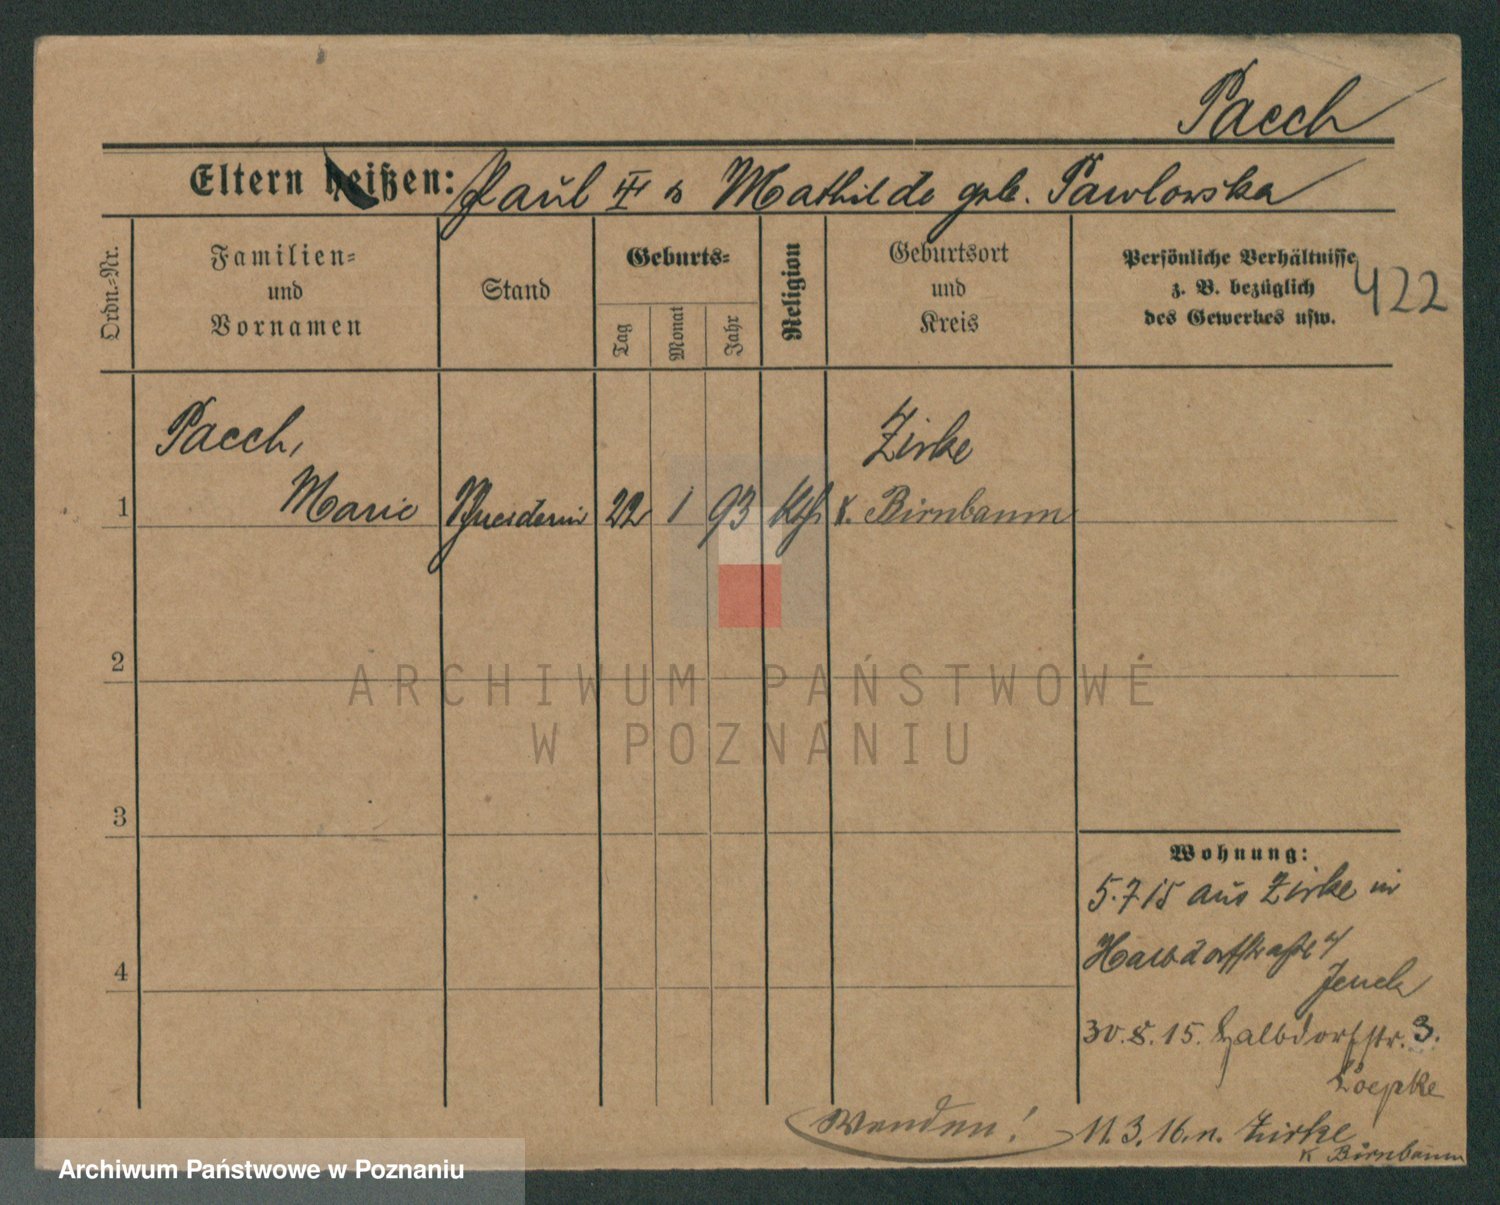 Paech
Eltern heißen: Paul III & Mathilde geb. Pawlowska
Ordn.-Nr.
Familien-
und
Vornamen
Stand
Geburts-
Tag
Monat
Jahr
Religion
Geburtsort
und
Kreis
Persönliche Verhältnisse
z. B. bezüglich
des Gewerbes usw.
422
Paech,
Zirke
1 Marie 22 1 93 kth K. Birnbaum
2
ARCHIWUM PAŃSTWOWE
W POZNANIU
3
Wohnung:
5.7.15 aus Zirke in
Halbdorfstraße 4
4
30.8.15. Halbdorfstr. 3.
Loepke
Wenden! 11.3.16. n. Zirke
K Birnbaum
Archiwum Państwowe w Poznaniu